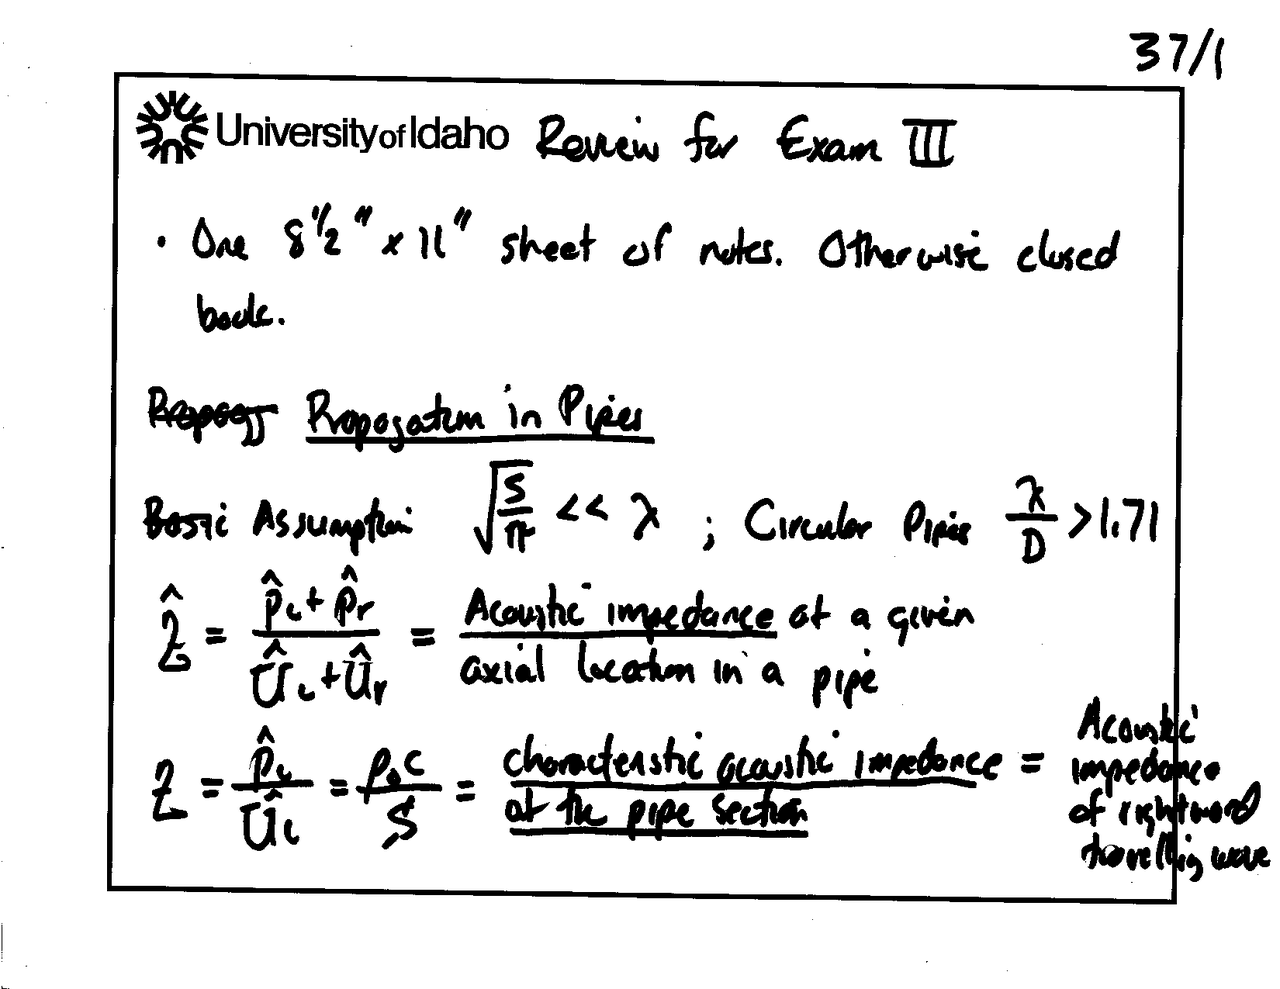 37/1
University of Idaho Review for Exam III
· One 8 1/2" x 11" sheet of notes. Otherwise closed
book.
Propag Propagation in Pipes
Basic Assumption √(S/π) << λ ; Circular Pipes λ/D > 1.71
Ẑ = (p̂i + p̂r)/(Ûi + Ûr) = Acoustic impedance at a given
axial location in a pipe
Z = p̂i/Ûi = ρ₀c/S = characteristic acoustic impedance
at the pipe section
= Acoustic
impedance
of rightward
travelling wave